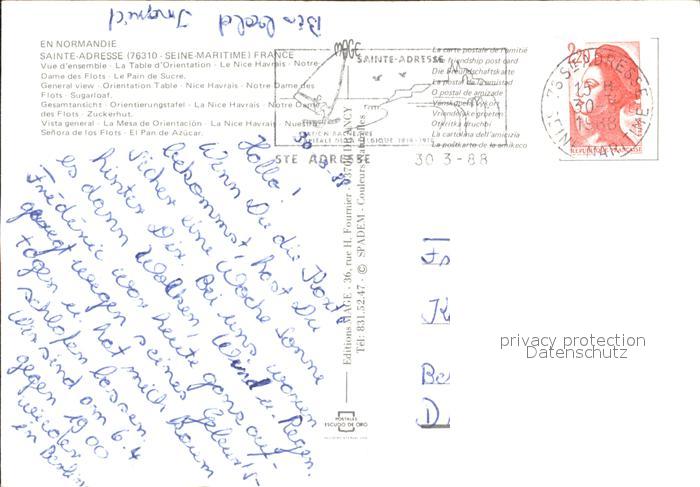 Bis bald
Ingrid
EN NORMANDIE
SAINTE-ADRESSE (76310 - SEINE-MARITIME) FRANCE
Vue d'ensemble - La Table d'Orientation - Le Nice Havrais - Notre-
Dame des Flots - Le Pain de Sucre.
General view - Orientation Table - Nice Havrais - Notre Dame
des Flots - Sugarloaf.
Gesamtansicht - Orientierungstafel - La Nice Havrais - Notre Dame
des Flots - Zuckerhut.
Vista general - La Mesa de Orientación - La Nice Havrais - Nuestra
Señora de los Flots - El Pan de Azúcar.
SAINTE-ADRESSE
STE ADRESSE
30 3-88
La carte postale de l'amitié
The friendship post card
Die Freundschaftskarte
O postal de amizade
La cartolina dell'amicizia
La postkarte de la amikeco
2,20
REPUBLIQUE FRANÇAISE
76 STE ADRESSE
15 H
30 - 3
1988
SEINE MARITIME
30.3.88
Hallo!
Wenn Du die Post
bekommst, hast Du
sicher eine Woche Sonne
hinter Dir. Bei uns waren
es dann Wolken, Wind u. Regen.
Frédéric war heute ganz auf-
geregt wegen seines Geburts-
tages u. hat mich kaum
schlafen lassen.
Wir sind am 6.4.
gegen 19 00
wieder
in Berlin
Editions MAGE - 36, rue H. Fournier - 93700 DRANCY
Tél: 831.52.47 - © SPADEM - Couleurs naturelles
POSTALES
ESCUDO DE ORO
Fr
K
Be
D
privacy protection
Datenschutz